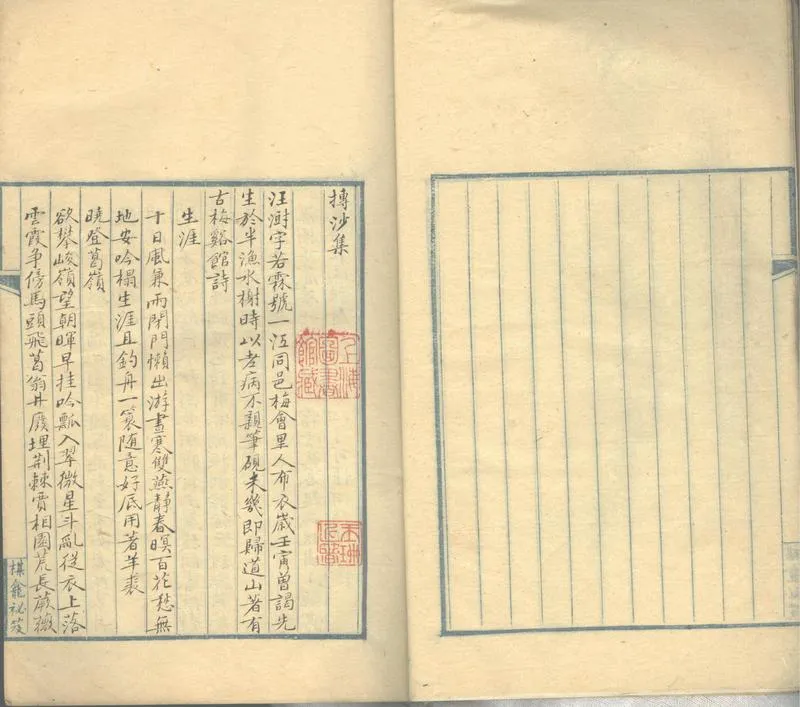 摶沙集
汪澍字若霖號一江同邑梅會里人布衣歲壬寅曾謁先
生於半漁水榭時以老病不親筆硯未幾即歸道山著有
古梅谿館詩
生涯
十日風兼雨閉門懶出游晝寒雙燕靜春暝百花愁無
地安吟榻生涯且釣舟一蓑随意好底用著羊裘
曉登葛嶺
欲攀峻嶺望朝暉早挂吟瓢入翠微星斗亂從衣上落
雲霞争傍馬頭飛葛翁井廢埋荆棘賈相園荒長蕨薇
上海圖書館藏
棋龕祕笈